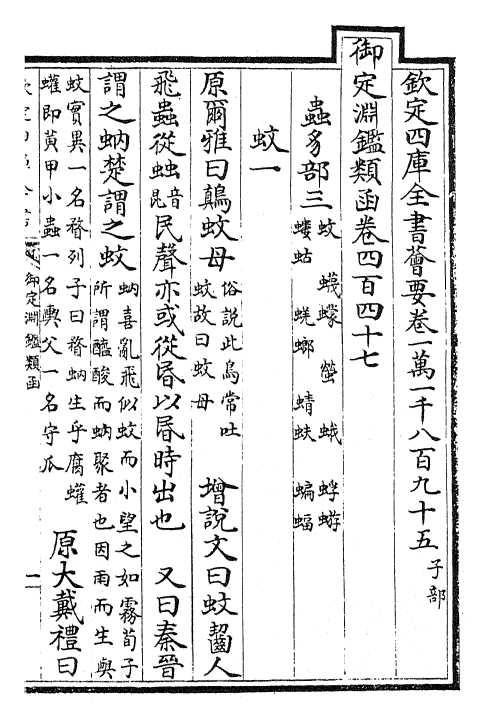 欽定四庫全書薈要卷一萬一千八百九十五 子部
御定淵鑑類函卷四百四十七
蟲豸部三 蚊 蠛蠓 螢 蛾 蜉蝣
螻蛄 蜣螂 蜻蚨 蝙蝠
蚊一
原爾雅曰鷏蚊母 俗說此鳥常吐
蚊故曰蚊母 增說文曰蚊齧人
飛蟲從䖵 音
昆 民聲亦或從昬以昬時出也 又曰秦晉
謂之蜹楚謂之蚊 蜹喜亂飛似蚊而小望之如霧荀子
所謂醯酸而蜹聚者也因雨而生與
蚊實異一名瞀列子曰瞀蜹生乎腐蠸
蠸即黃甲小蟲一名輿父一名守瓜 原大戴禮曰
御定淵鑑類函
一